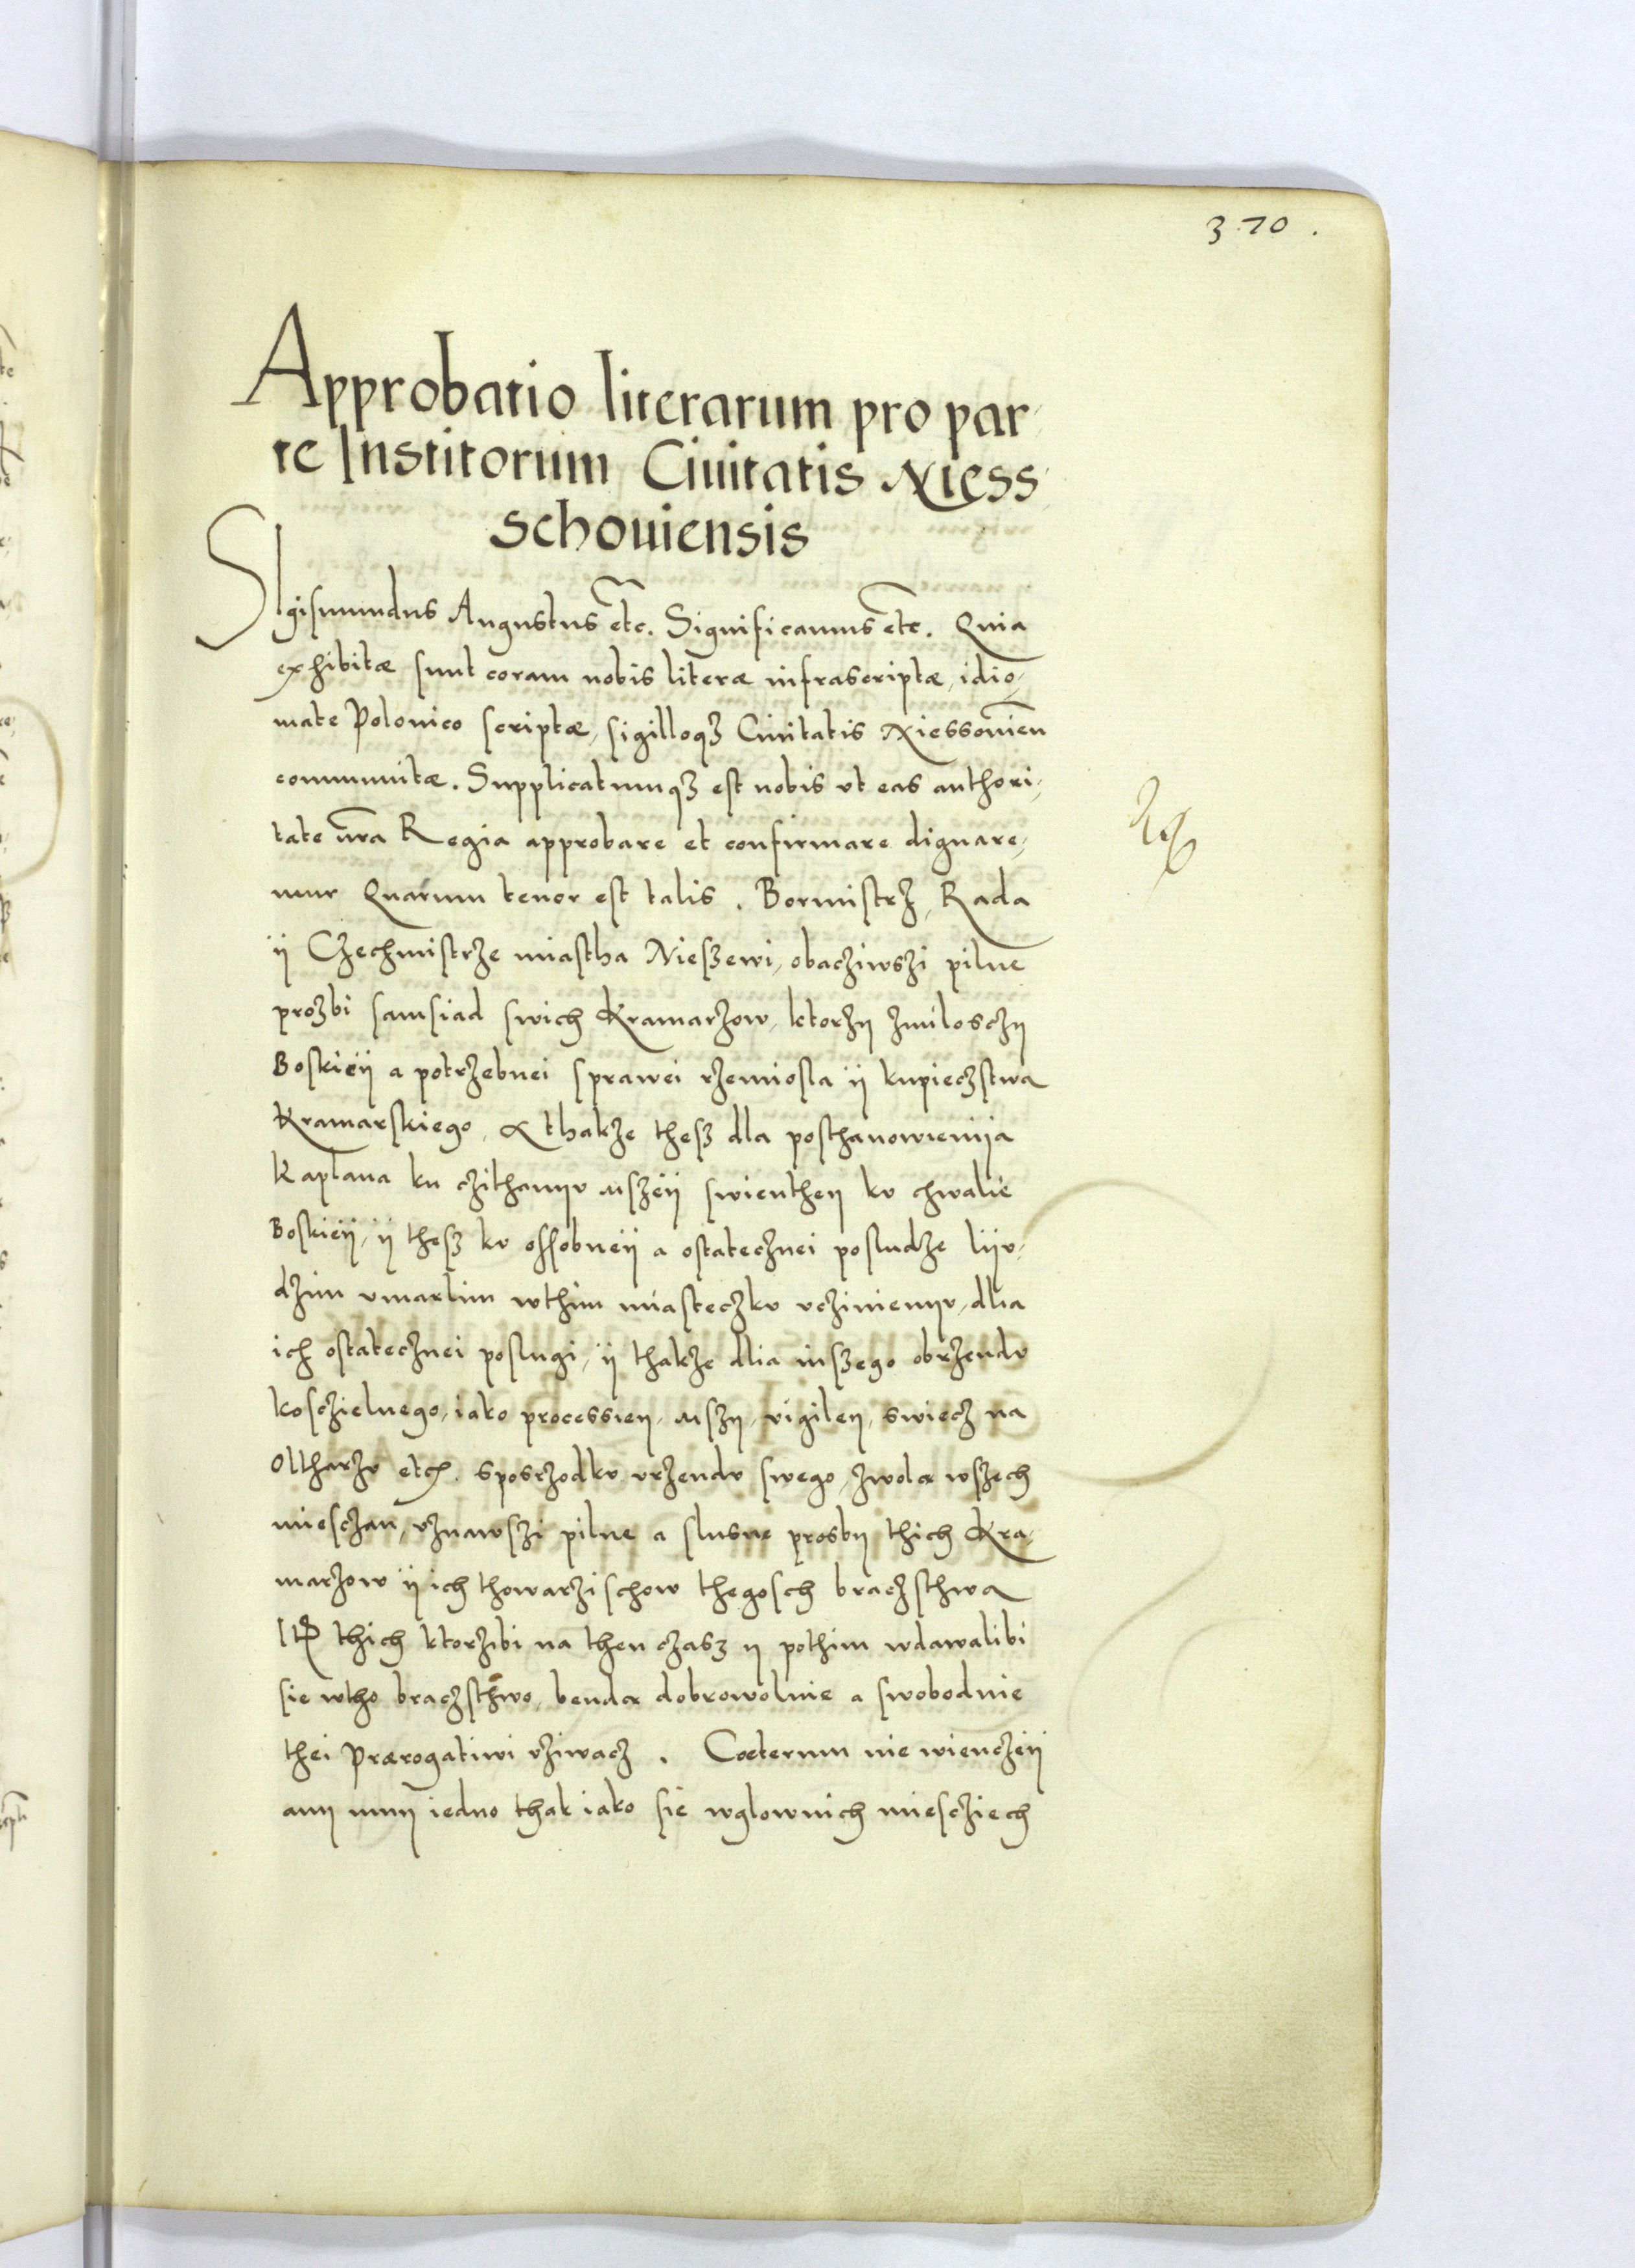 370.
Approbatio literarum pro par-
te Institorum Ciuitatis Niess-
schouiensis
SIgismundus Augustus etc. Significamus etc. Quia
exhibitæ sunt coram nobis literæ infrascriptæ, idio-
mate Polonico scriptæ, sigilloqꝫ Ciuitatis Niessouien
communitæ. Supplicatumqꝫ est nobis vt eas authori-
tate nr̃a Regia approbare et confirmare dignare-
mur Quarum tenor est talis. Bormistrz, Rada
ÿ Czechmistrze miastha Nieszewi, obacziwszi pilne
prozbi samsiad swich Kramarzow, ktorzy zmiloschy
Boskieÿ a potrzebnei sprawei rzemiosla ÿ kupieczstwa
Kramarskiego, A thakze thesz dla posthanowienija
Kaplana ku czithanyv mszeÿ swienthey kv chwalie
Boskieÿ, ÿ thesz kv ossobneÿ a ostatecznei posludze liÿv-
dzim vmarlim wthim miasteczkv vcziniemyv, dlia
ich ostatecznei poslugi, ÿ thakze dlia inszego obrzendv
kosczielnego, iako processiey, mszy, vigiley, swiecz na
Oltharzv etcz. sposrzodkv vrzendv swego, zwola wszech
miesczan, vznawszi pilne a slusne prosby thich Kra-
marzow ÿ ich thowarzischow thegosch braczsthwa
Itꝫ thich ktorzibi na then czasz y pothim wdawalibi
sie wtho braczsthwo, benda dobrowolnie a swobodnie
thei Prærogatiwi vziwacz. Cæterum nie wienczeÿ
any mnỹ iedno thak iako sie wglownich miescziech